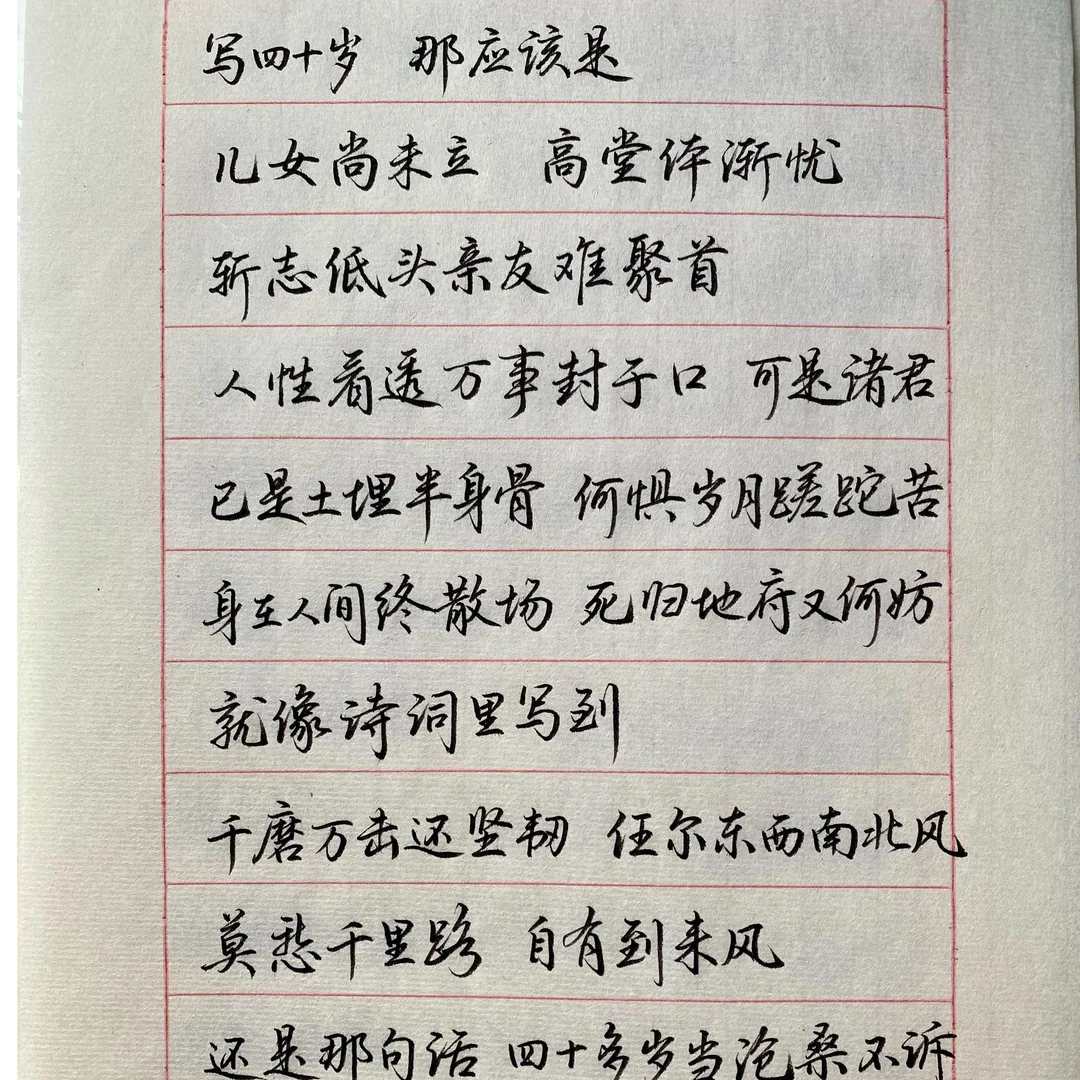 写四十岁 那应该是
儿女尚未立 高堂体渐忧
斩志低头亲友难聚首
人性看透万事封于口 可是诸君
已是土埋半身骨 何惧岁月蹉跎苦
身在人间终散场 死归地府又何妨
就像诗词里写到
千磨万击还坚韧 任尔东西南北风
莫愁千里路 自有到来风
还是那句话 四十多岁当沧桑不诉